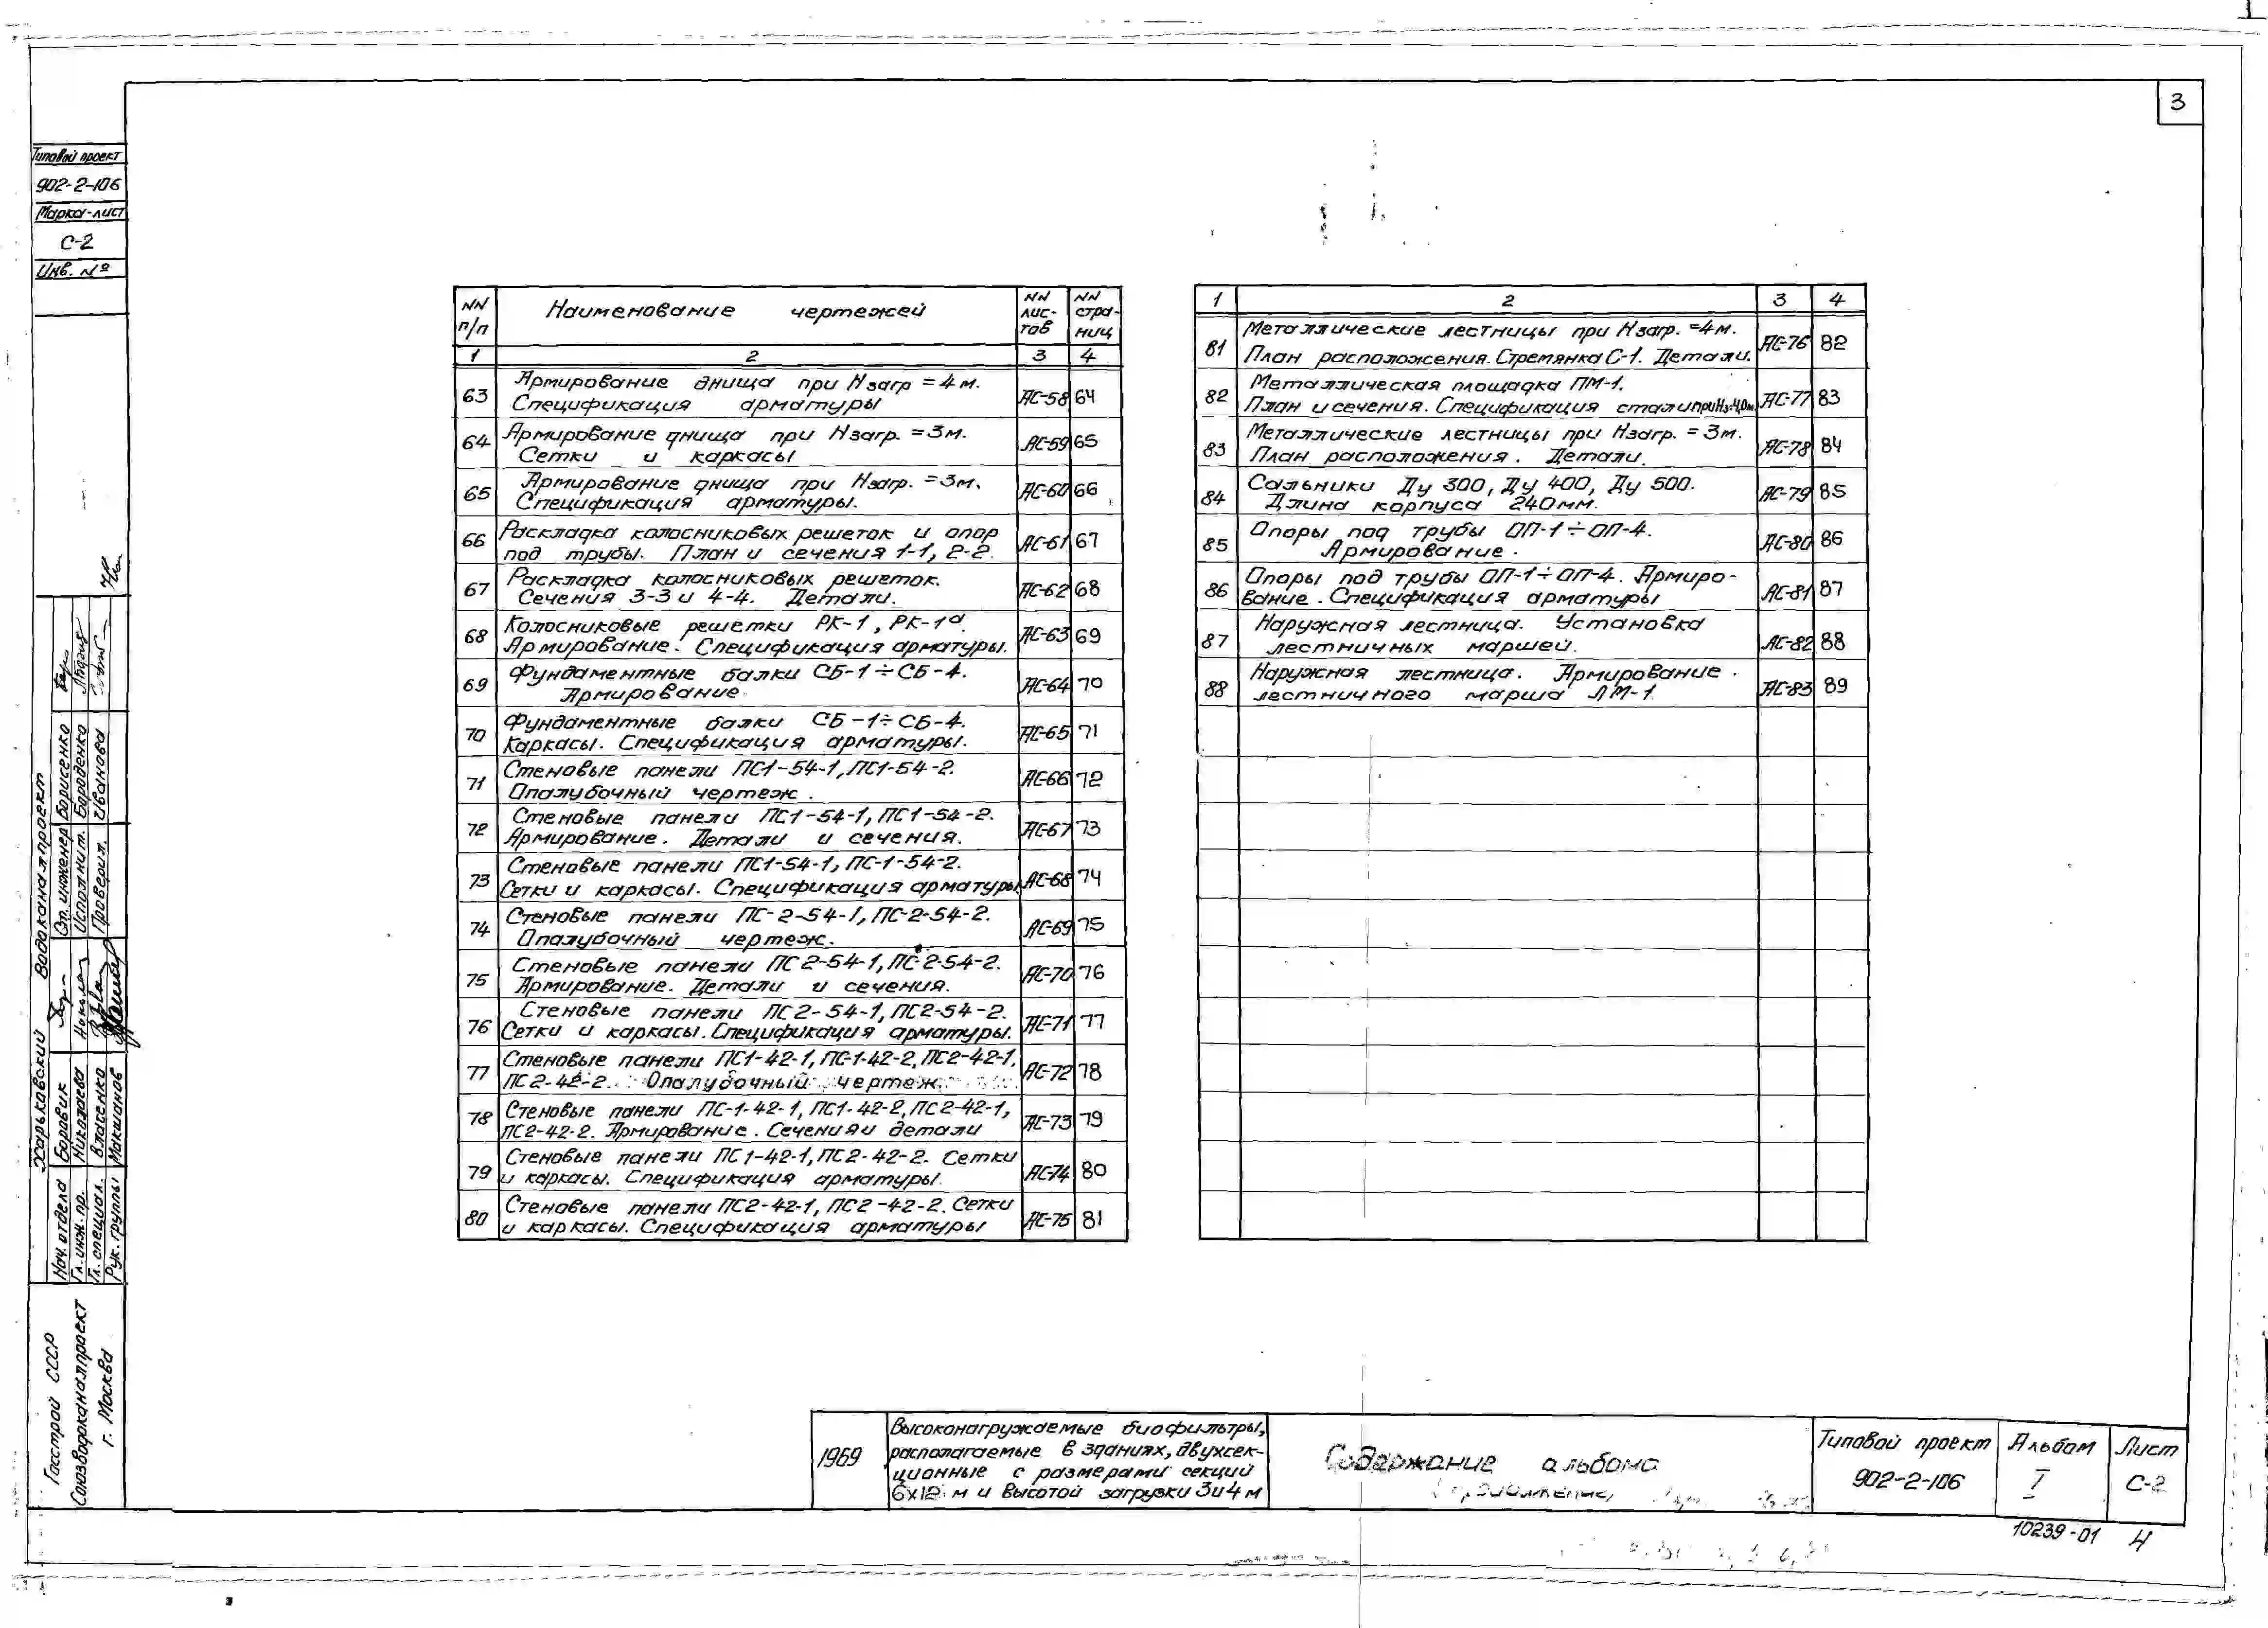 3
Типовой проект
902-2-106
Марка-лист
С-2
Инв. №
NN п/п
Наименование чертежей
NN лис-тов
NN стра-ниц
1 2 3 4
63 Армирование днища при Нзагр = 4м.
Спецификация арматуры АС-58 64
64 Армирование днища при Нзагр. = 3м.
Сетки и каркасы АС-59 65
65 Армирование днища при Нзагр. = 3м.
Спецификация арматуры. АС-60 66
66 Раскладка колосниковых решеток и опор
под трубы. План и сечения 1-1, 2-2. АС-61 67
67 Раскладка колосниковых решеток.
Сечения 3-3 и 4-4. Детали. АС-62 68
68 Колосниковые решетки РК-1, РК-1а.
Армирование. Спецификация арматуры. АС-63 69
69 Фундаментные балки СБ-1÷СБ-4.
Армирование АС-64 70
70 Фундаментные балки СБ-1÷СБ-4.
Каркасы. Спецификация арматуры. АС-65 71
71 Стеновые панели ПС1-54-1, ПС1-54-2.
Опалубочный чертеж. АС-66 72
72 Стеновые панели ПС1-54-1, ПС1-54-2.
Армирование. Детали и сечения. АС-67 73
73 Стеновые панели ПС1-54-1, ПС-1-54-2.
Сетки и каркасы. Спецификация арматуры АС-68 74
74 Стеновые панели ПС-2-54-1, ПС-2-54-2.
Опалубочный чертеж. АС-69 75
75 Стеновые панели ПС2-54-1, ПС-2-54-2.
Армирование. Детали и сечения. АС-70 76
76 Стеновые панели ПС2-54-1, ПС2-54-2.
Сетки и каркасы. Спецификация арматуры. АС-71 77
77 Стеновые панели ПС1-42-1, ПС-1-42-2, ПС2-42-1,
ПС2-42-2. Опалубочный чертеж АС-72 78
78 Стеновые панели ПС-1-42-1, ПС1-42-2, ПС2-42-1,
ПС2-42-2. Армирование. Сечения и детали АС-73 79
79 Стеновые панели ПС1-42-1, ПС2-42-2. Сетки
и каркасы. Спецификация арматуры. АС-74 80
80 Стеновые панели ПС2-42-1, ПС2-42-2. Сетки
и каркасы. Спецификация арматуры АС-75 81
1 2 3 4
81 Металлические лестницы при Нзагр. = 4м.
План расположения. Стремянка С-1. Детали. АС-76 82
82 Металлическая площадка ПМ-1.
План и сечения. Спецификация стали при Нз=4,0м АС-77 83
83 Металлические лестницы при Нзагр. = 3м.
План расположения. Детали. АС-78 84
84 Сальники Ду 300, Ду 400, Ду 500.
Длина корпуса 240мм. АС-79 85
85 Опоры под трубы ОП-1÷ОП-4.
Армирование. АС-80 86
86 Опоры под трубы ОП-1÷ОП-4. Армиро-
вание. Спецификация арматуры АС-81 87
87 Наружная лестница. Установка
лестничных маршей. АС-82 88
88 Наружная лестница. Армирование.
лестничного марша ЛМ-1. АС-83 89
Харьковский Водоканалпроект
Нач. отдела Боровик
Гл. инж. пр. Николаева
Гл. специал. Власенко
Рук. группы Макшанов
Ст. инженер Борисенко
Исполнит. Бороденко
Проверил. Иванова
Госстрой СССР
Союзводоканалпроект
г. Москва
1969
Высоконагружаемые биофильтры,
располагаемые в зданиях, двухсек-
ционные с размерами секций
6х12 м и высотой загрузки 3 и 4 м
Содержание альбома
(продолжение)
Типовой проект
902-2-106
Альбом
I
Лист
С-2
10239-01 4